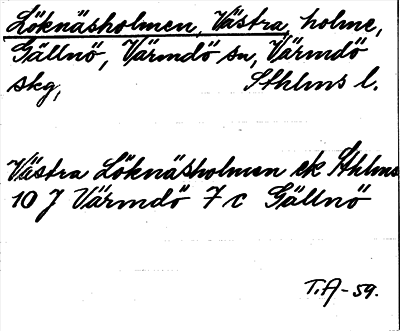 Löknäsholmen, Västra, holme,
Gällnö, Värmdö sn, Värmdö
skg, Sthlms l.
Västra Löknäsholmen ek Sthlms
10 J Värmdö 7 c Gällnö
T.A-59.